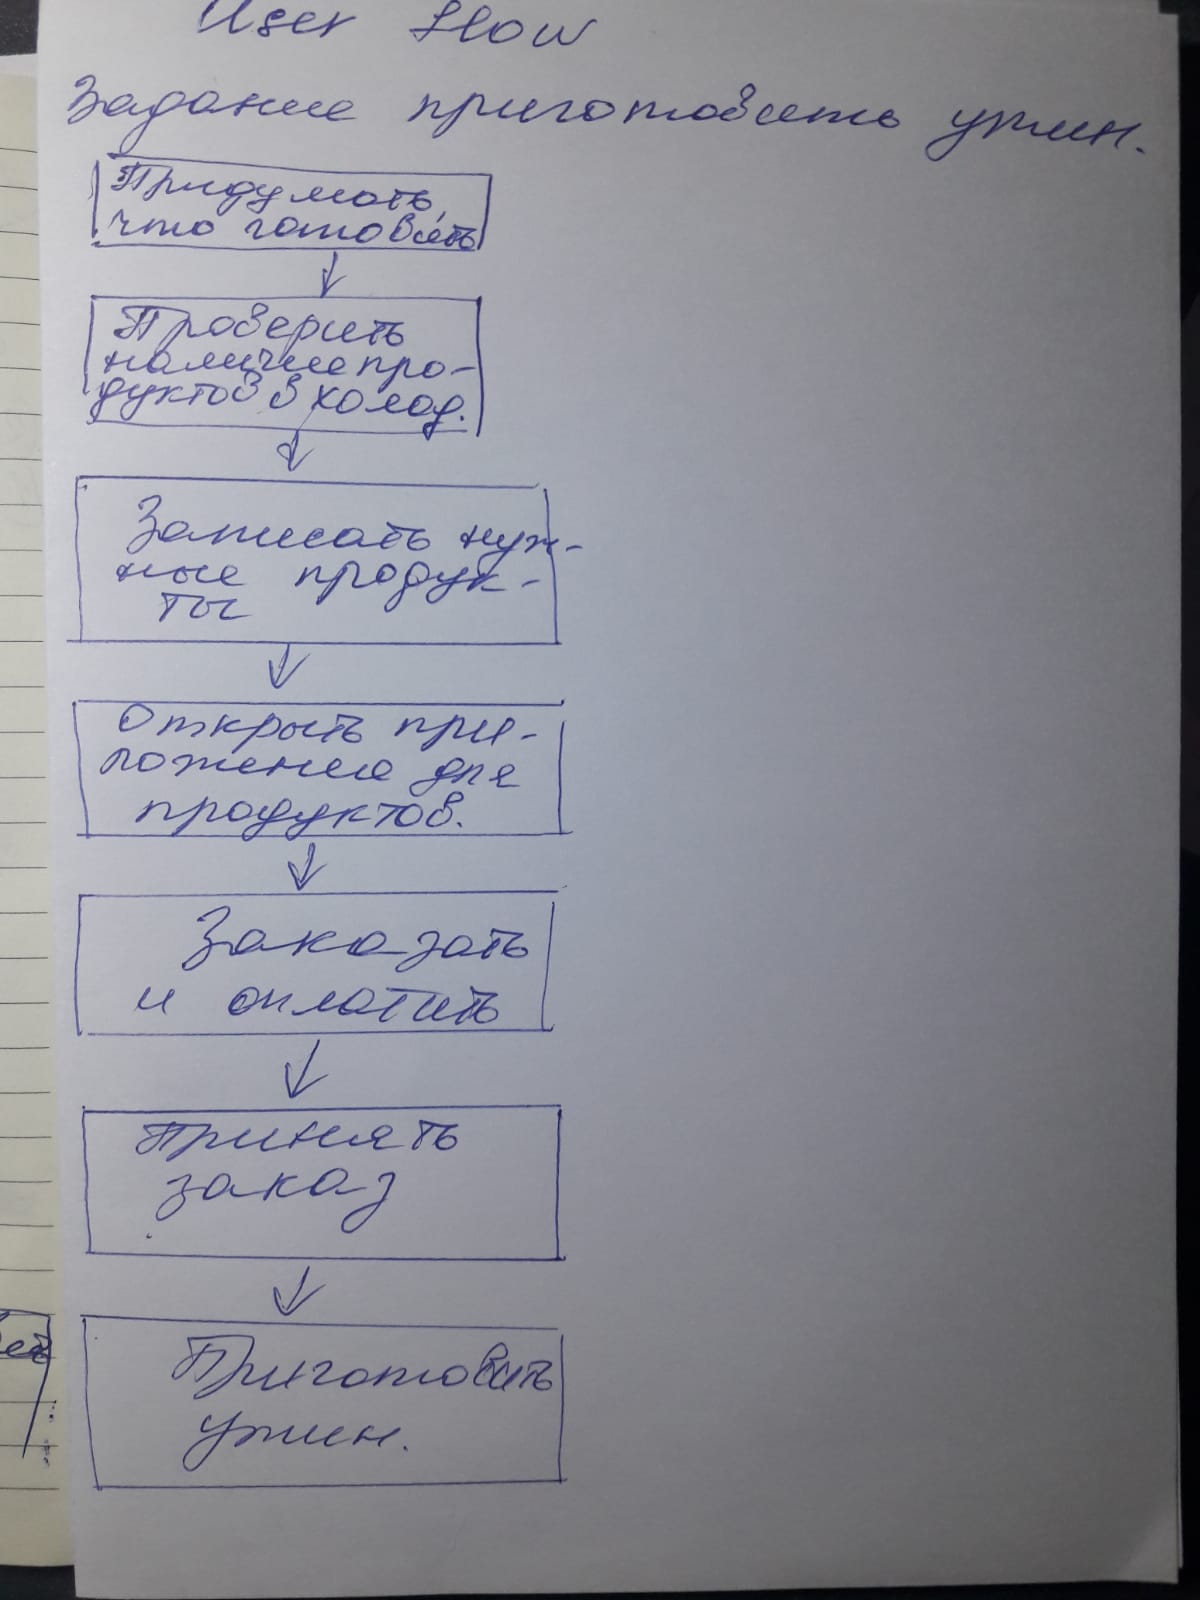 User flow
Задание приготовить ужин.
Придумать,
что готовить
Проверить
наличие про-
дуктов в холод.
Записать нуж-
ные продук-
ты
Открыть при-
ложение для
продуктов.
Заказать
и оплатить
Принять
заказ
Приготовить
ужин.